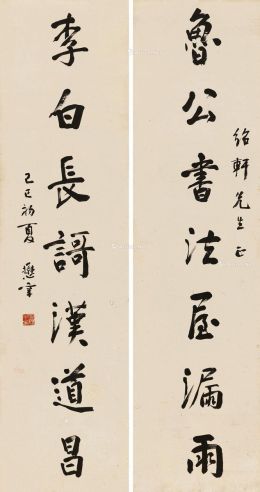 紹軒先生正
魯公書法屋漏雨
李白長謌漢道昌
己巳初夏 懋章